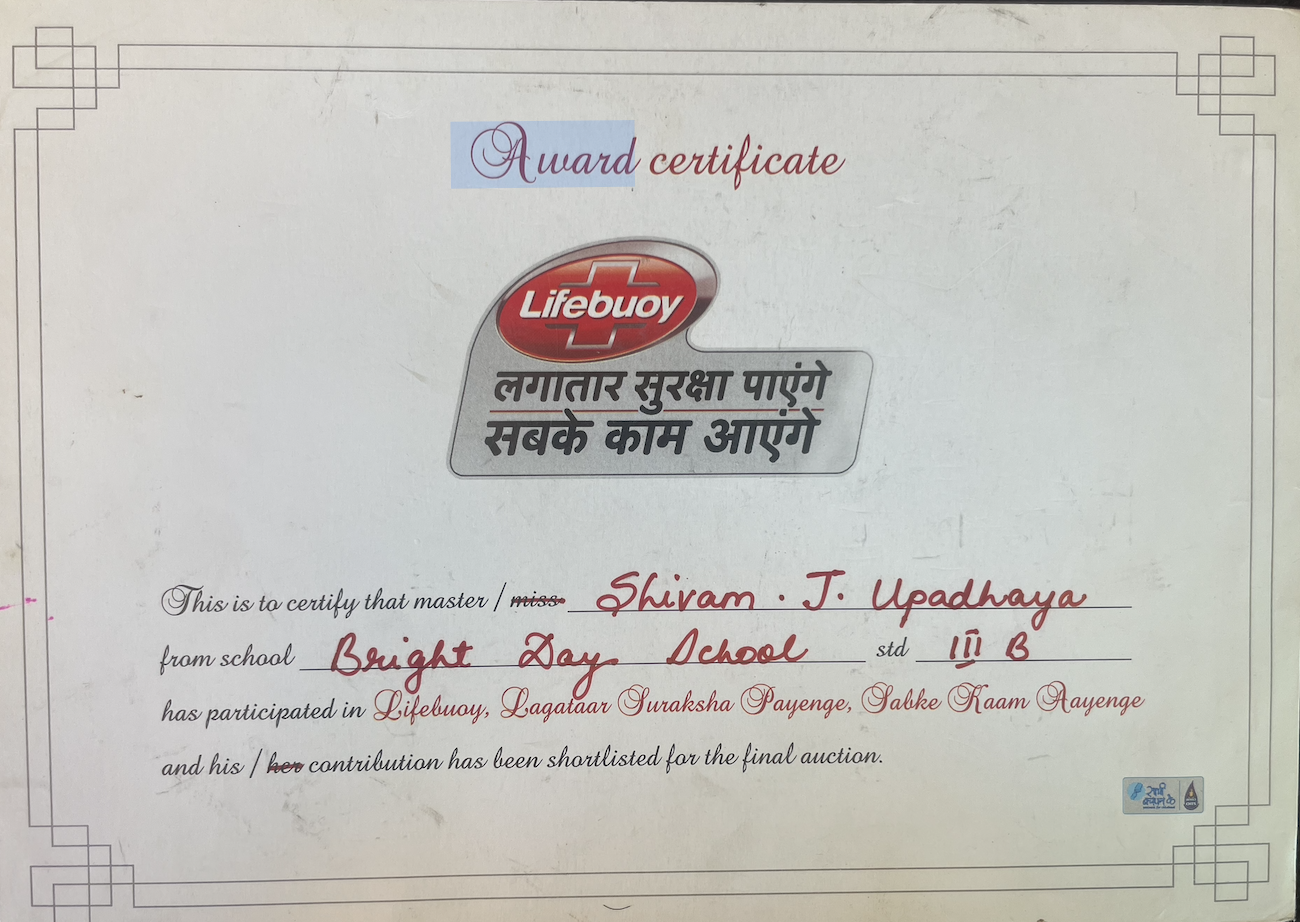 Award certificate
Lifebuoy
लगातार सुरक्षा पाएंगे
सबके काम आएंगे
This is to certify that master / miss Shivam . J. Upadhaya
from school Bright Day School std III B
has participated in Lifebuoy, Lagataar Suraksha Payenge, Sabke Kaam Aayenge
and his / her contribution has been shortlisted for the final auction.